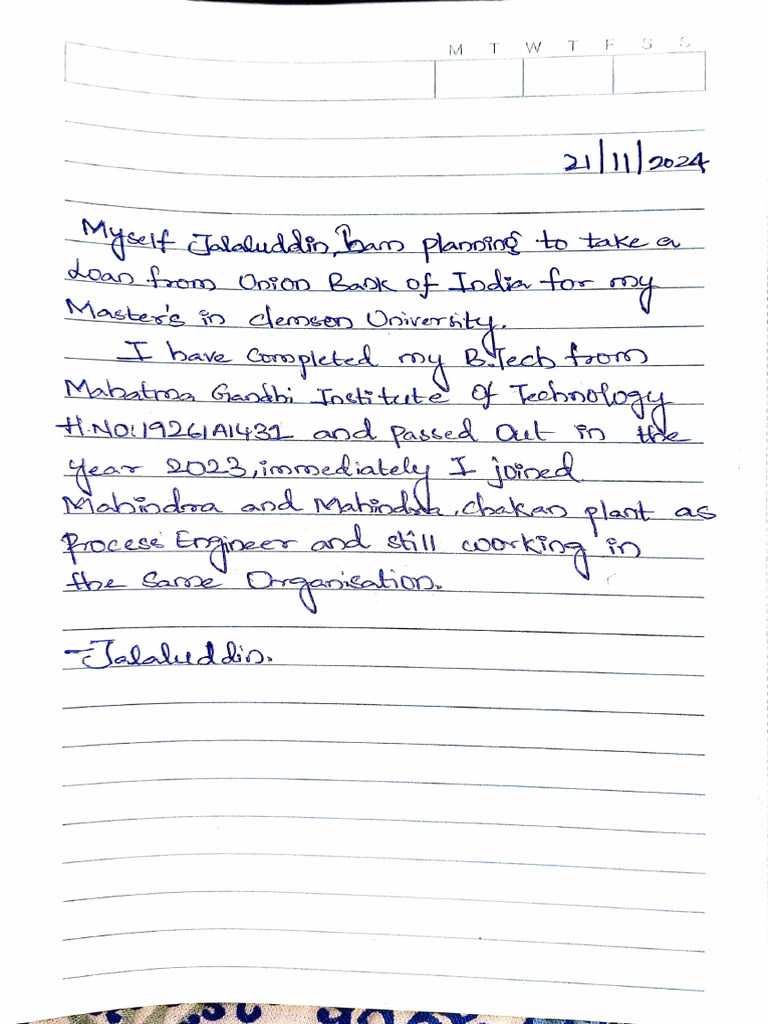 M T W T F S S
21/11/2024
Myself Jalaluddin, I am planning to take a
Loan from Union Bank of India for my
Master's in clemson University.
I have Completed my B.Tech from
Mahatma Gandhi Institute Of Technology
H.NO:19261A1431 and passed Out in the
year 2023, immediately I joined
Mahindra and Mahindra, chakan plant as
Process Engineer and still working in
the same Organisation.
-Jalaluddin.